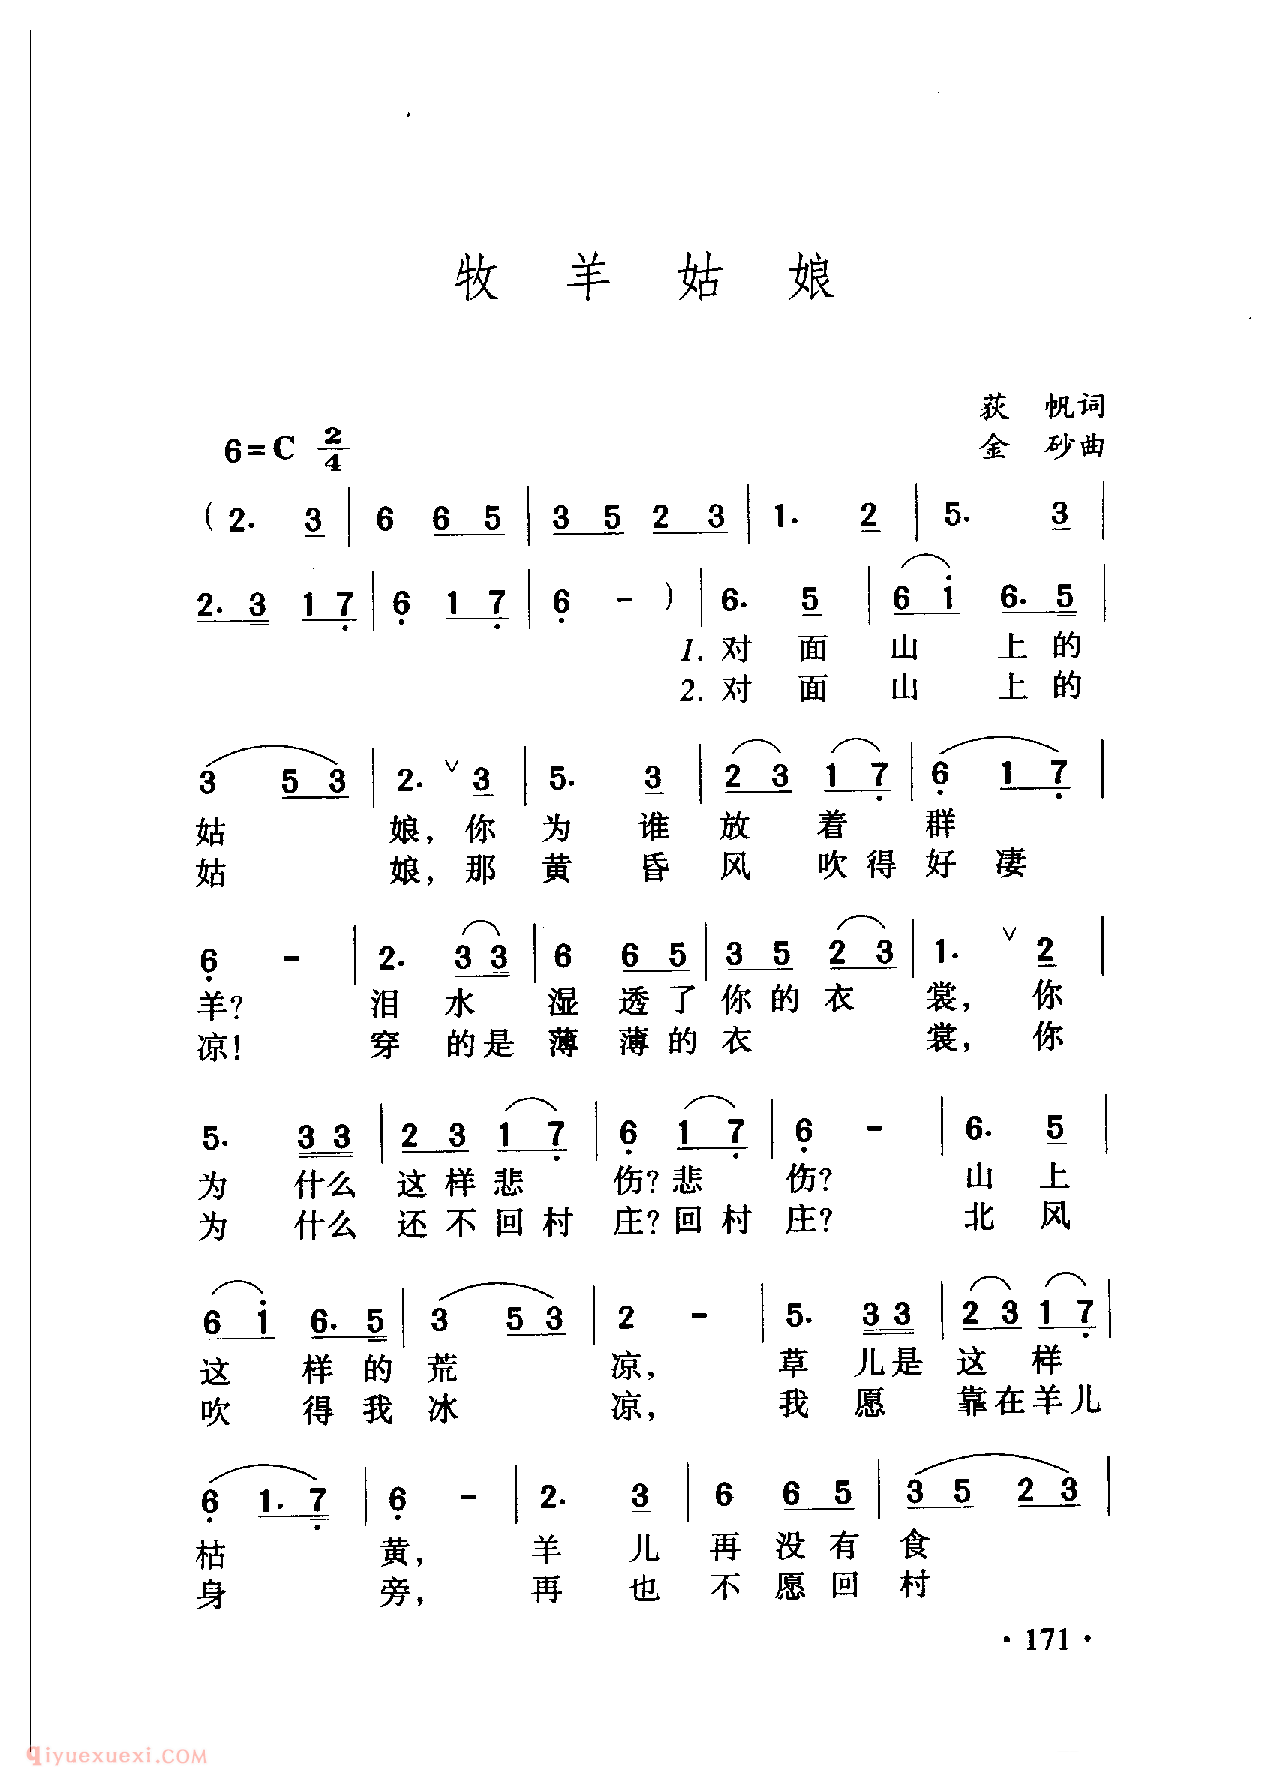 牧羊姑娘
荻 帆词
6=C 2/4
金 砂曲
( 2. 3 | 6 6 5 | 3 5 2 3 | 1. 2 | 5. 3 |
2. 3 1 7 | 6 1 7 | 6 - ) | 6. 5 | 6 i 6. 5 |
1. 对 面 山 上 的
2. 对 面 山 上 的
3 5 3 | 2. ∨ 3 | 5. 3 | 2 3 1 7 | 6 1 7 |
姑 娘, 你 为 谁 放 着 群
姑 娘, 那 黄 昏 风 吹 得 好 凄
6 - | 2. 3 3 | 6 6 5 | 3 5 2 3 | 1. ∨ 2 |
羊? 泪 水 湿 透 了 你 的 衣 裳, 你
凉! 穿 的 是 薄 薄 的 衣 裳, 你
5. 3 3 | 2 3 1 7 | 6 1 7 | 6 - | 6. 5 |
为 什么 这 样 悲 伤? 悲 伤? 山 上
为 什么 还 不 回 村 庄? 回 村 庄? 北 风
6 i 6. 5 | 3 5 3 | 2 - | 5. 3 3 | 2 3 1 7 |
这 样 的 荒 凉, 草 儿是 这 样
吹 得 我 冰 凉, 我 愿 靠 在 羊 儿
6 1. 7 | 6 - | 2. 3 | 6 6 5 | 3 5 2 3 |
枯 黄, 羊 儿 再 没 有 食
身 旁, 再 也 不 愿 回 村
· 171 ·
qiyuexuexi.COM